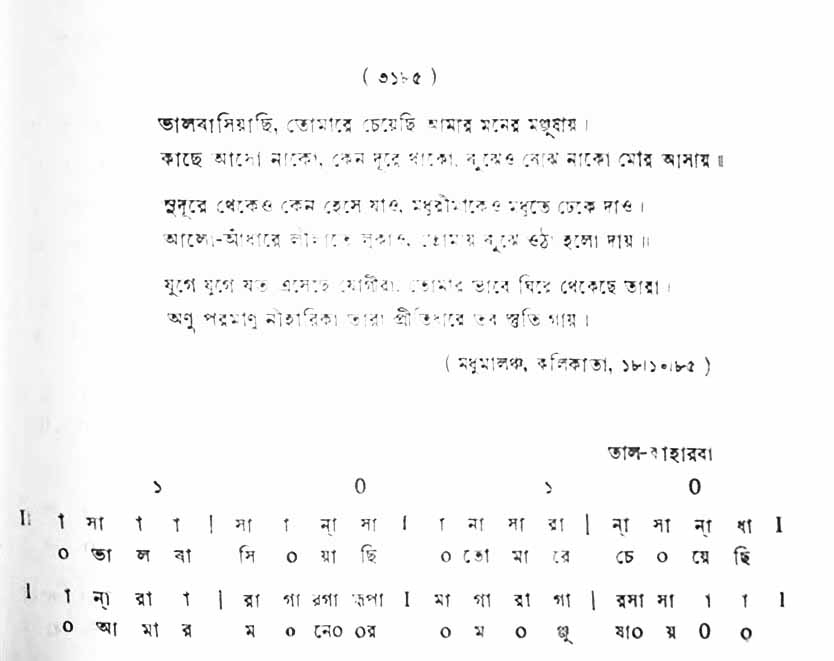 ( ৩১৮৫ )
ভালবাসিয়াছি, তোমারে চেয়েছি আমার মনের মঞ্জুষায় ।
কাছে আসো নাকো, কেন দূরে থাকো, বুঝেও বোঝ নাকো মোর আসায় ॥
সুদূরে থেকেও কেন হেসে যাও, মধুরীমাকেও মধুতে ঢেকে দাও ।
আলো-আঁধারে লীলাতে লুকাও, তোমায় বুঝে ওঠা হলো দায় ॥
যুগে যুগে যত এসেছে যোগীরা, তোমার ভাবে ঘিরে থেকেছে তারা ।
অণু পরমাণু নীহারিকা তারা প্রীতিধারে তব স্তুতি গায় ।
( মধুমালঞ্চ, কলিকাতা, ১৮।১০।৮৫ )
তাল-কাহারবা
১ 0 ১ 0
II া সা া া | সা া ন্ সা I া না সা রা | ন্ সা ন্ ধা I
০ ভা ল বা সি ০ য়া ছি ০ তো মা রে চে ০ য়ে ছি
I া ন্ রা া | রা গা রগা রূপা I মা গা রা গা | রসা সা া া I
০ আ মা র ম ০ নে০ ০র ০ ম ০ ঞ্জু ষা০ য় 0 ০